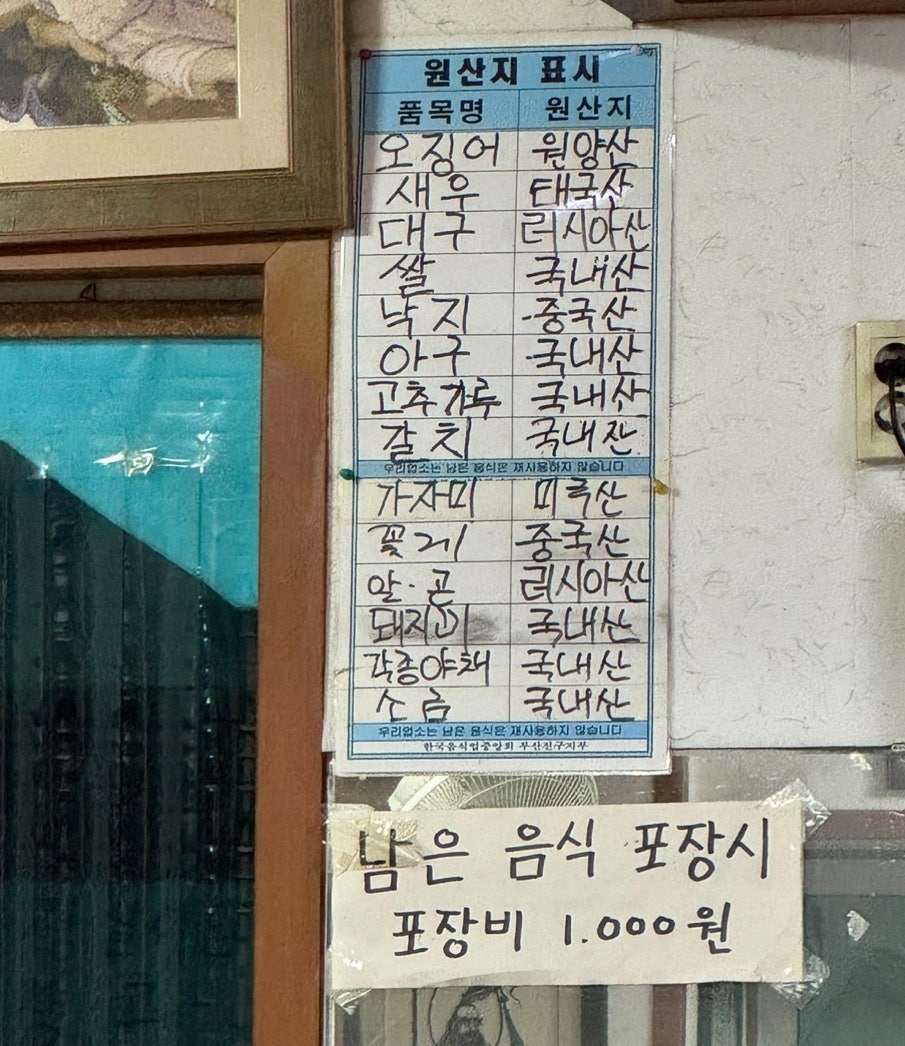 원산지 표시
품목명 원산지
오징어 원양산
새우 태국산
대구 러시아산
쌀 국내산
낙지 중국산
아구 국내산
고추가루 국내산
갈치 국내산
우리업소는 남은 음식은 재사용하지 않습니다
가자미 미국산
꽃게 중국산
알·곤 러시아산
돼지고기 국내산
각종야채 국내산
소금 국내산
우리업소는 남은 음식은 재사용하지 않습니다
한국음식업중앙회 부산진구지부
남은 음식 포장시
포장비 1.000원